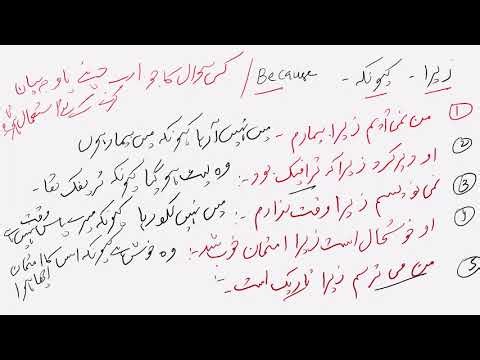 زیرا - کیونکہ - Because / کسی سوال کا جواب دینے یا وجہ بیان
کرنے کے لئے استعمال ہوتا ہے
① من نمی آیم زیرا بیمارم - میں نہیں آرہا کیونکہ میں بیمار ہوں
② او دیر کرد زیرا که ترافیک بود -: وہ لیٹ ہو گیا کیونکہ ٹریفک تھا -
③ نمی نویسم زیرا وقت ندارم -: میں نہیں لکھ رہا کیونکہ میرے پاس وقت نہیں ہے
او خوشحال است زیرا امتحان خوب شد -: وہ خوش ہے کیونکہ اس کا امتحان اچھا ہوا
⑤ من می ترسم زیرا تاریک است -: